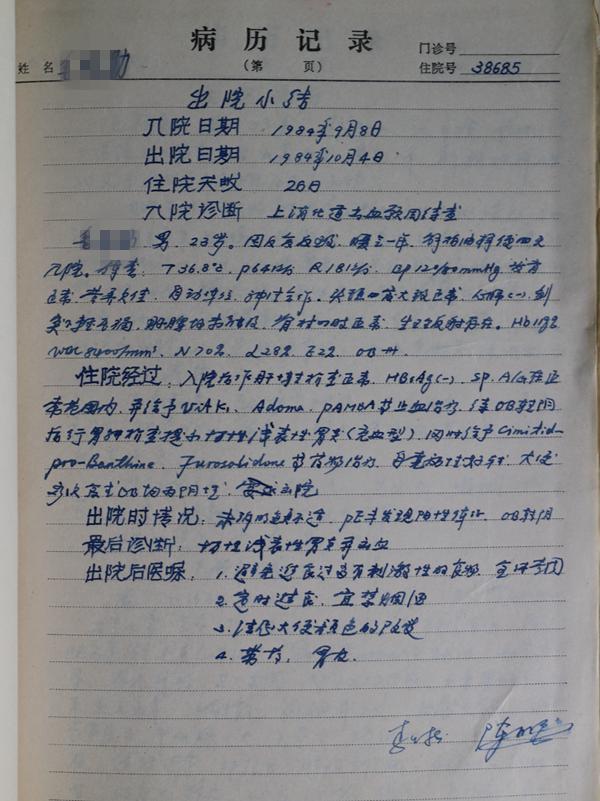 病历记录
(第 页)
门诊号
姓名 助
住院号 38685
出院小结
入院日期 1984年9月8日
出院日期 1984年10月4日
住院天数 26日
入院诊断 上消化道出血原因待查
男. 23岁. 因反复反酸. 嗳气一年. 解柏油样便四天
入院. 检查: T 36.8℃ P 64次/分 R 18次/分 BP 120/80mmHg 发育
正常 营养欠佳. 自动体位. 神清合作. 头颈 正常. 心肺(-). 剑
突下轻压痛. 肝脾均未触及. 脊柱四肢正常. 生理反射存在. Hb
WBC 8400/mm³. N 70% L 28% E 2% OB ++
住院经过: 入院后作肝功检查正常. HBsAg(-) SP. A/G在正
常范围内. 并给予Vit K₁. Adoma. PAMBA等止血治疗. 待OB转阴
后行胃镜检查提示 浅表性胃炎(充血型). 同时给予Cimitid-
pro-Banthine. Furosolidone等药物治疗 大便
多次复查OB均为阴性. 出院
出院时情况: 未 不适. PE未发现阳性体征. OB转阴
最后诊断: 浅表性胃炎并出血
出院后医嘱: 1. 避免进食过多有刺激性的食物. 全休
2. 定时进食. 宜禁烟酒
3. 注意大便颜色的改变
4. 带药: